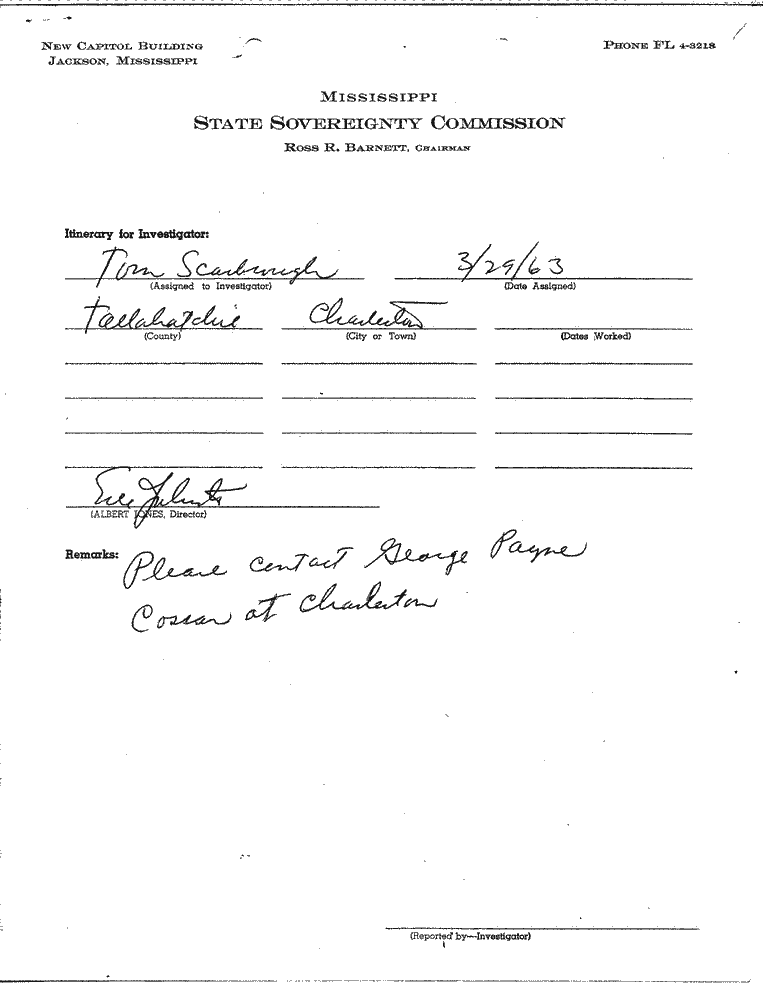 NEW CAPITOL BUILDING
JACKSON, MISSISSIPPI
PHONE FL 4-3218
MISSISSIPPI
STATE SOVEREIGNTY COMMISSION
ROSS R. BARNETT, CHAIRMAN
Itinerary for Investigator:
Tom Scarbrough 3/29/63
(Assigned to Investigator) (Date Assigned)
Tallahatchie Charleston
(County) (City or Town) (Dates Worked)
Erle Johnston
(ALBERT JONES, Director)
Remarks: Please contact George Payne
Cossar at Charleston
(Reported by—Investigator)